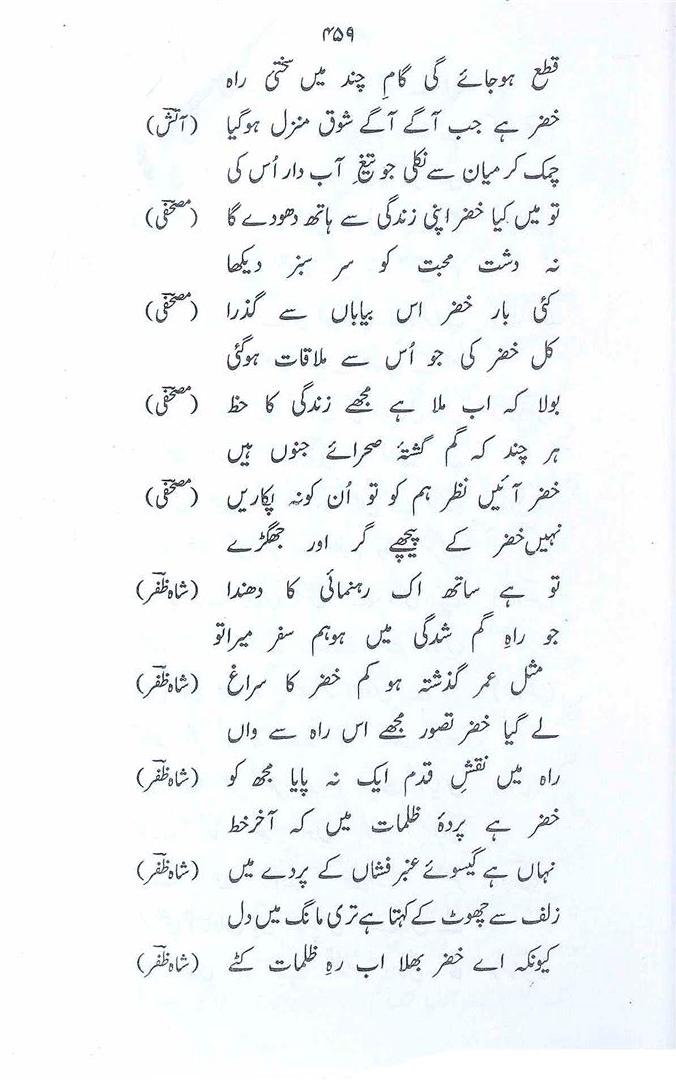 ۴۵۹
قطع ہوجائے گی گامِ چند میں سختیٔ راہ
خضر ہے جب آگے آگے شوق منزل ہوگیا (آتش)
چمک کر میان سے نکلی جو تیغِ آب دار اُس کی
تو میں کیا خضر اپنی زندگی سے ہاتھ دھودے گا (مصحفی)
نہ دشت محبت کو سر سبز دیکھا
کئی بار خضر اس بیاباں سے گذرا (مصحفی)
کل خضر کی جو اُس سے ملاقات ہوگئی
بولا کہ اب ملا ہے مجھے زندگی کا حظ (مصحفی)
ہر چند کہ گم گشتۂ صحرائے جنوں ہیں
خضر آئیں نظر ہم کو تو اُن کونہ پکاریں (مصحفی)
نہیں خضر کے پیچھے گر اور جھگڑے
تو ہے ساتھ اک رہنمائی کا دھندا (شاہ ظفر)
جو راہِ گم شدگی میں ہوہم سفر میراتو
مثل عمر گذشتہ ہو کم خضر کا سراغ (شاہ ظفر)
لے گیا خضر تصور مجھے اس راہ سے واں
راہ میں نقشِ قدم ایک نہ پایا مجھ کو (شاہ ظفر)
خضر ہے پردۂ ظلمات میں کہ آخر خط
نہاں ہے گیسوئے عنبر فشاں کے پردے میں (شاہ ظفر)
زلف سے چھوٹ کے کہتا ہے تری مانگ میں دل
کیونکہ اے خضر بھلا اب رہِ ظلمات کٹے (شاہ ظفر)